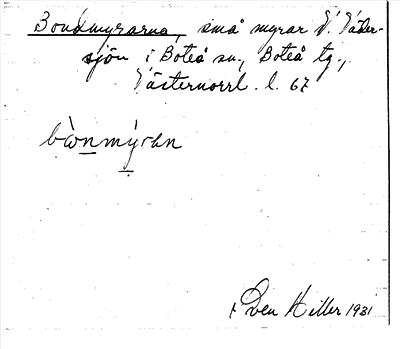 Bondmyrarna, små myrar V. Väter-
sjön i Boteå sn, Boteå tg,
Västernorrl. l. 67
bὼnmýrɐn
Hiller 1931